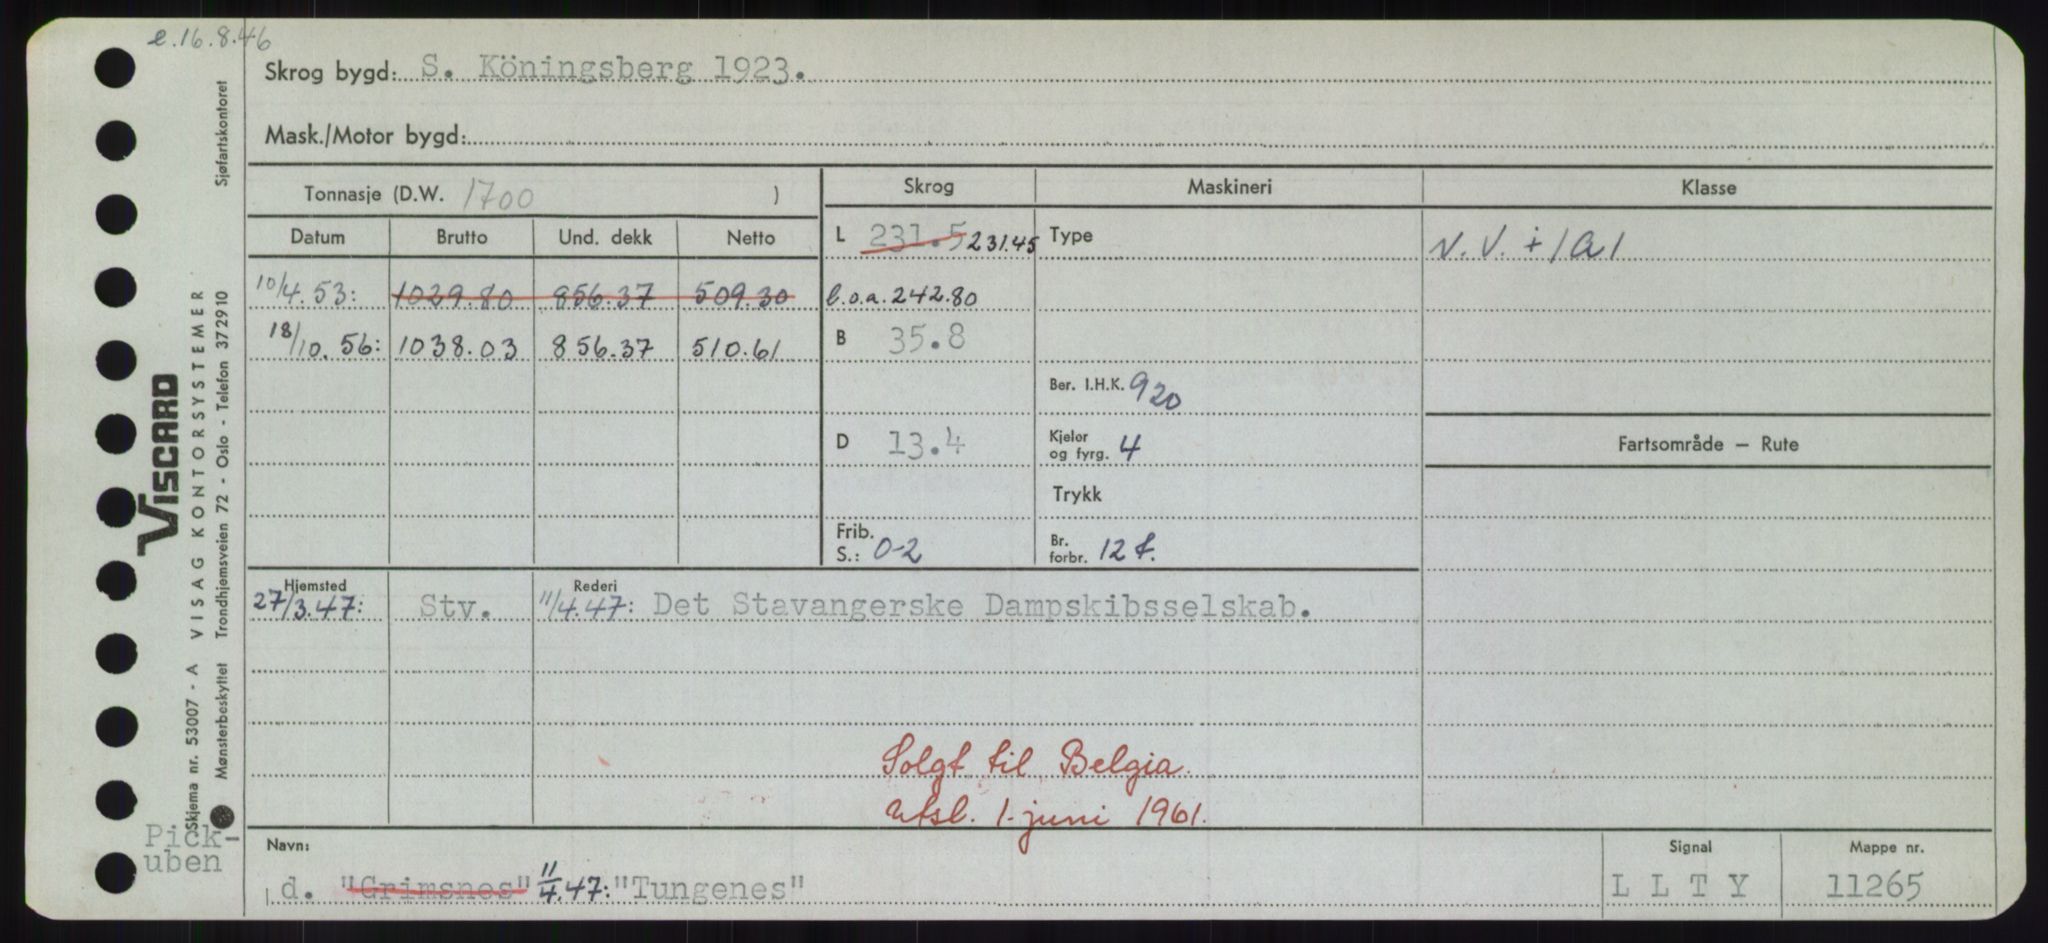 e.16.8.46
Skrog bygd: S. Köningsberg 1923.
Mask./Motor bygd:
Tonnasje (D.W. 1700 )
Skrog
Maskineri
Klasse
Datum Brutto Und. dekk Netto
L 231.5 231.45
Type
10/4.53: 1029.80 856.37 509.30
l.o.a. 242.80
18/10.56: 1038.03 856.37 510.61
B 35.8
Ber. I.H.K. 920
D 13.4
Kjelor
og fyrg. 4
Fartsområde — Rute
Trykk
Frib.
S.: 0-2
Br.
forbr. 12 t.
Hjemsted
27/3.47: Stv.
Rederi
11/4.47: Det Stavangerske Dampskibsselskab.
Solgt til Belgia.
utsl. 1. juni 1961.
Navn:
d. "Grimsnes" 11/4.47: "Tungenes"
Signal
L L T Y
Mappe nr.
11265
Pick-
uben
VISCARD
VISAG KONTORSYSTEMER
Skjema nr. 53007 - A
Mønsterbeskyttet Trondhjemsveien 72 - Oslo - Telefon 372910
Sjøfartskontoret